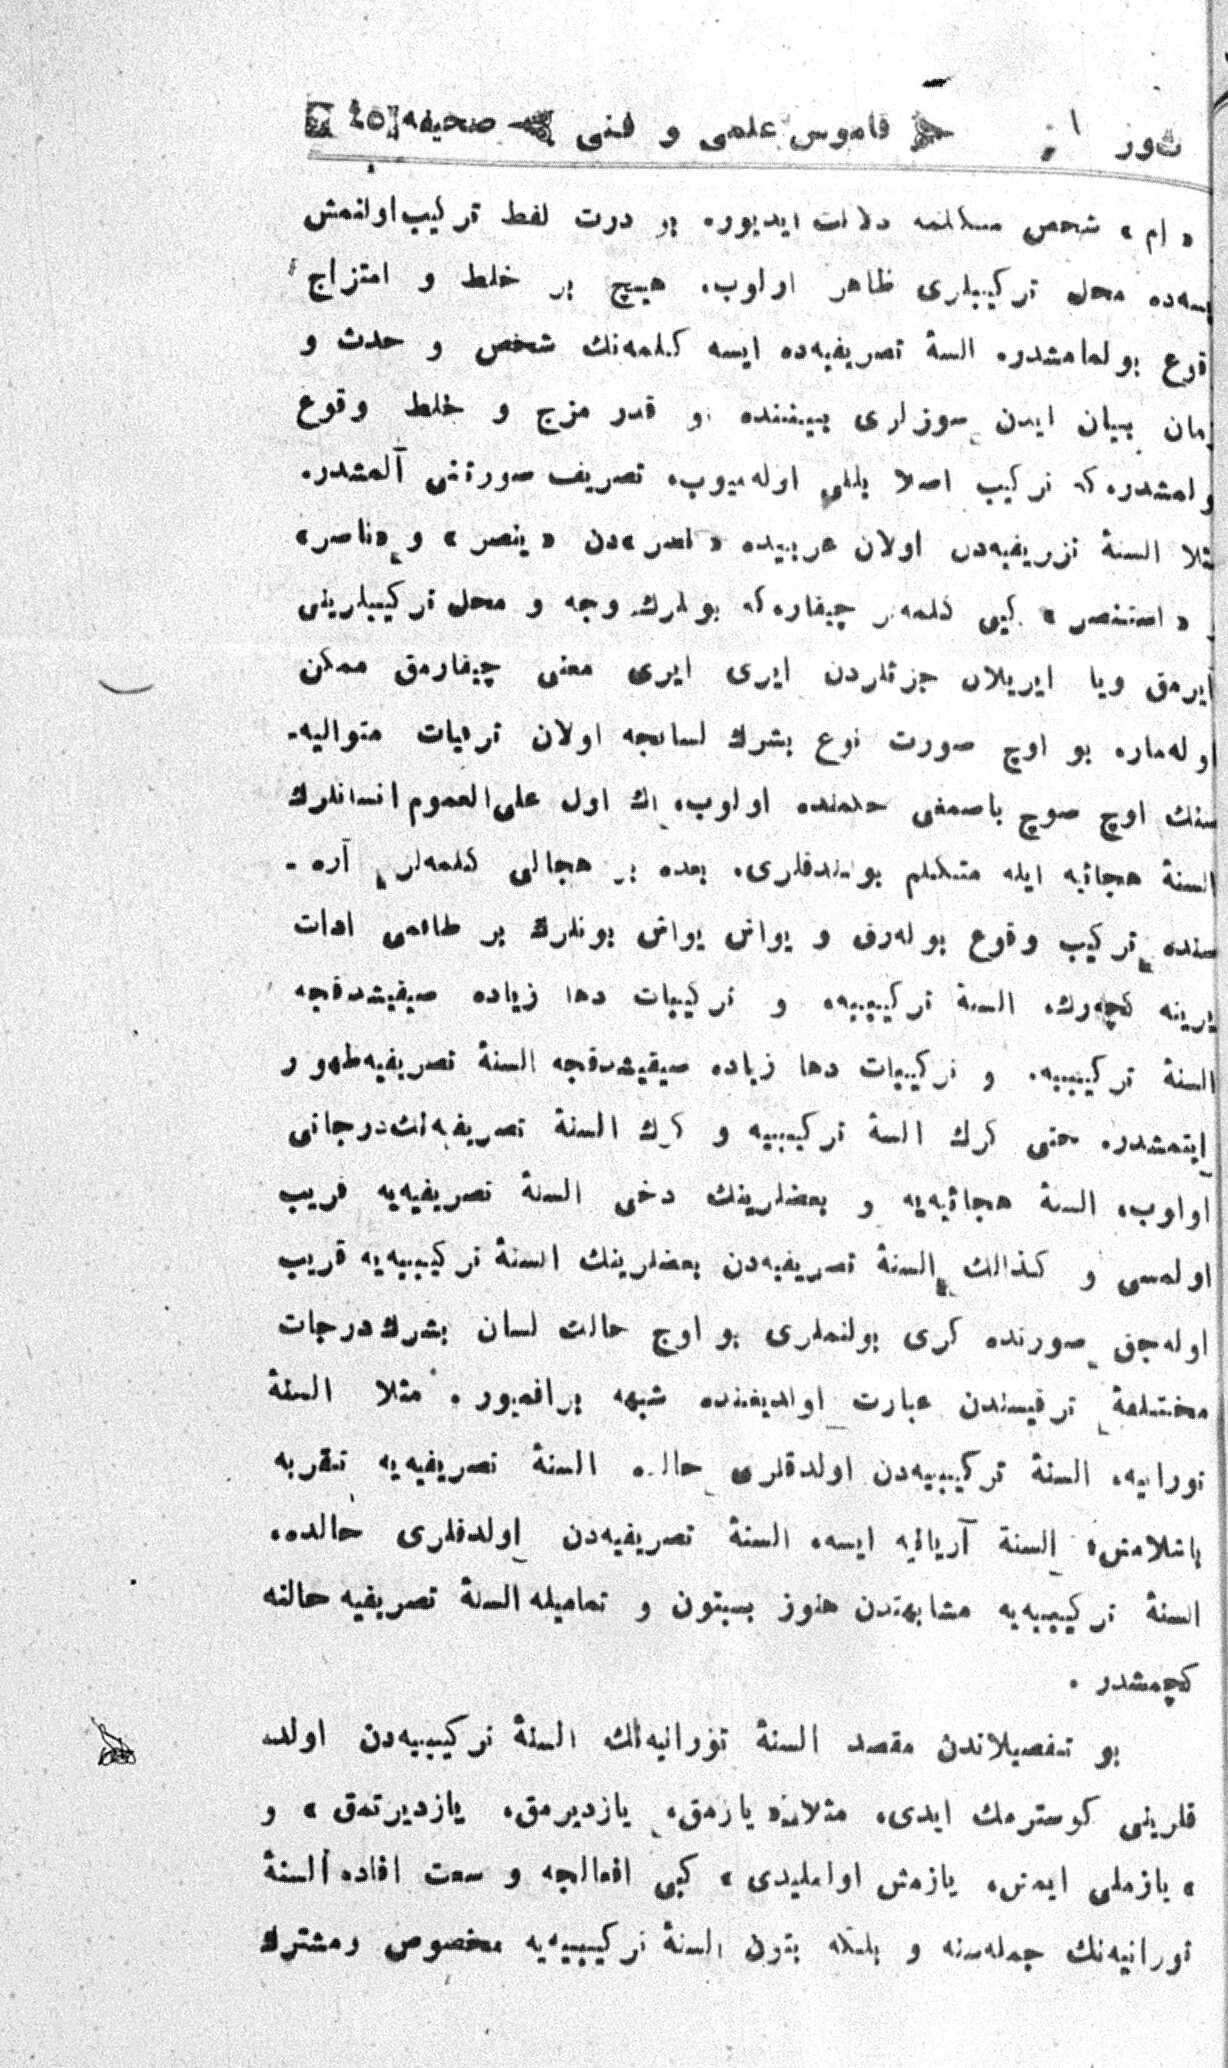 قاموس علمی و فنی صحیفه
« ام » شخص متکلمه دلالت ایدیور. بو درت لفظ ترکیب اولنمش
ایسه‌ده محل ترکیبلری ظاهر اولوب، هیچ بر خلط و امتزاج
وقوع بولمامشدر. السنهٔ تصریفیه‌ده ایسه کلمه‌نك شخص و حدث و
زمان بیان ایدن سوزلری بیننده او قدر مزج و خلط وقوع
بولمشدر که ترکیب اصلا بللی اوله‌میوب، تصریف صورتنی آلمشدر.
مثلا السنهٔ تصریفیه‌دن اولان عربیده « نصر »دن « ینصر » و «ناصر»
و « استنصر » کبی کلمه‌لر چیقارکه بونلرك وجه و محل ترکیبلرینی
آیرمق ویا ایریلان جزئلردن ایری ایری معنی چیقارمق ممکن
اوله‌ماز. بو اوچ صورت نوع بشرك لسانجه اولان ترقیات متوالیه-
سنك اوچ باصمغی حکمنده اولوب، اك اول علی‌العموم انسانلرك
السنهٔ هجائیه ایله متکلم بولندقلری، بعده بر هجالی کلمه‌لر آره -
سنده ترکیب وقوع بوله‌رق و یواش یواش بونلرك بر طاقمی ادات
یرینه کچه‌رك، السنهٔ ترکیبیه، و ترکیبات دها زیاده صیقیشدقجه
السنهٔ ترکیبیه. و ترکیبات دها زیاده صیقیشدقجه السنهٔ تصریفیه ظهور
ایتمشدر. حتی کرك السنهٔ ترکیبیه و کرك السنهٔ تصریفیه‌نك درجاتی
اولوب، السنهٔ هجائیه‌یه و بعضلرینك دخی السنهٔ تصریفیه‌یه قریب
اولمسی و کذالك السنهٔ تصریفیه‌دن بعضلرینك السنهٔ ترکیبیه‌یه قریب
اوله‌جق صورتده کری بولنملری بو اوچ حالت لسان بشرك درجات
مختلفهٔ ترقیسندن عبارت اولدیغنده شبهه براقمیور. مثلا السنهٔ
تورانیه، السنهٔ ترکیبیه‌دن اولدقلری حالده السنهٔ تصریفیه‌یه تقربه
باشلامش، السنهٔ آریائیه ایسه، السنهٔ تصریفیه‌دن اولدقلری حالده،
السنهٔ ترکیبیه‌یه مشابهتدن هنوز بسبتون و تمامیله السنهٔ تصریفیه حالنه
کچمشدر .
بو تفصیلاتدن مقصد السنهٔ تورانیه‌نك السنهٔ ترکیبیه‌دن اولد-
قلرینی کوسترمك ایدی، مثلا « یازمق، یازدیرمق، یازدیرتمق » و
« یازملی ایمش، یازمش اولملیدی » کبی افعالجه و سعت افاده السنهٔ
تورانیه‌نك جمله‌سنه و بلکه بتون السنهٔ ترکیبیه‌یه مخصوص و مشترك